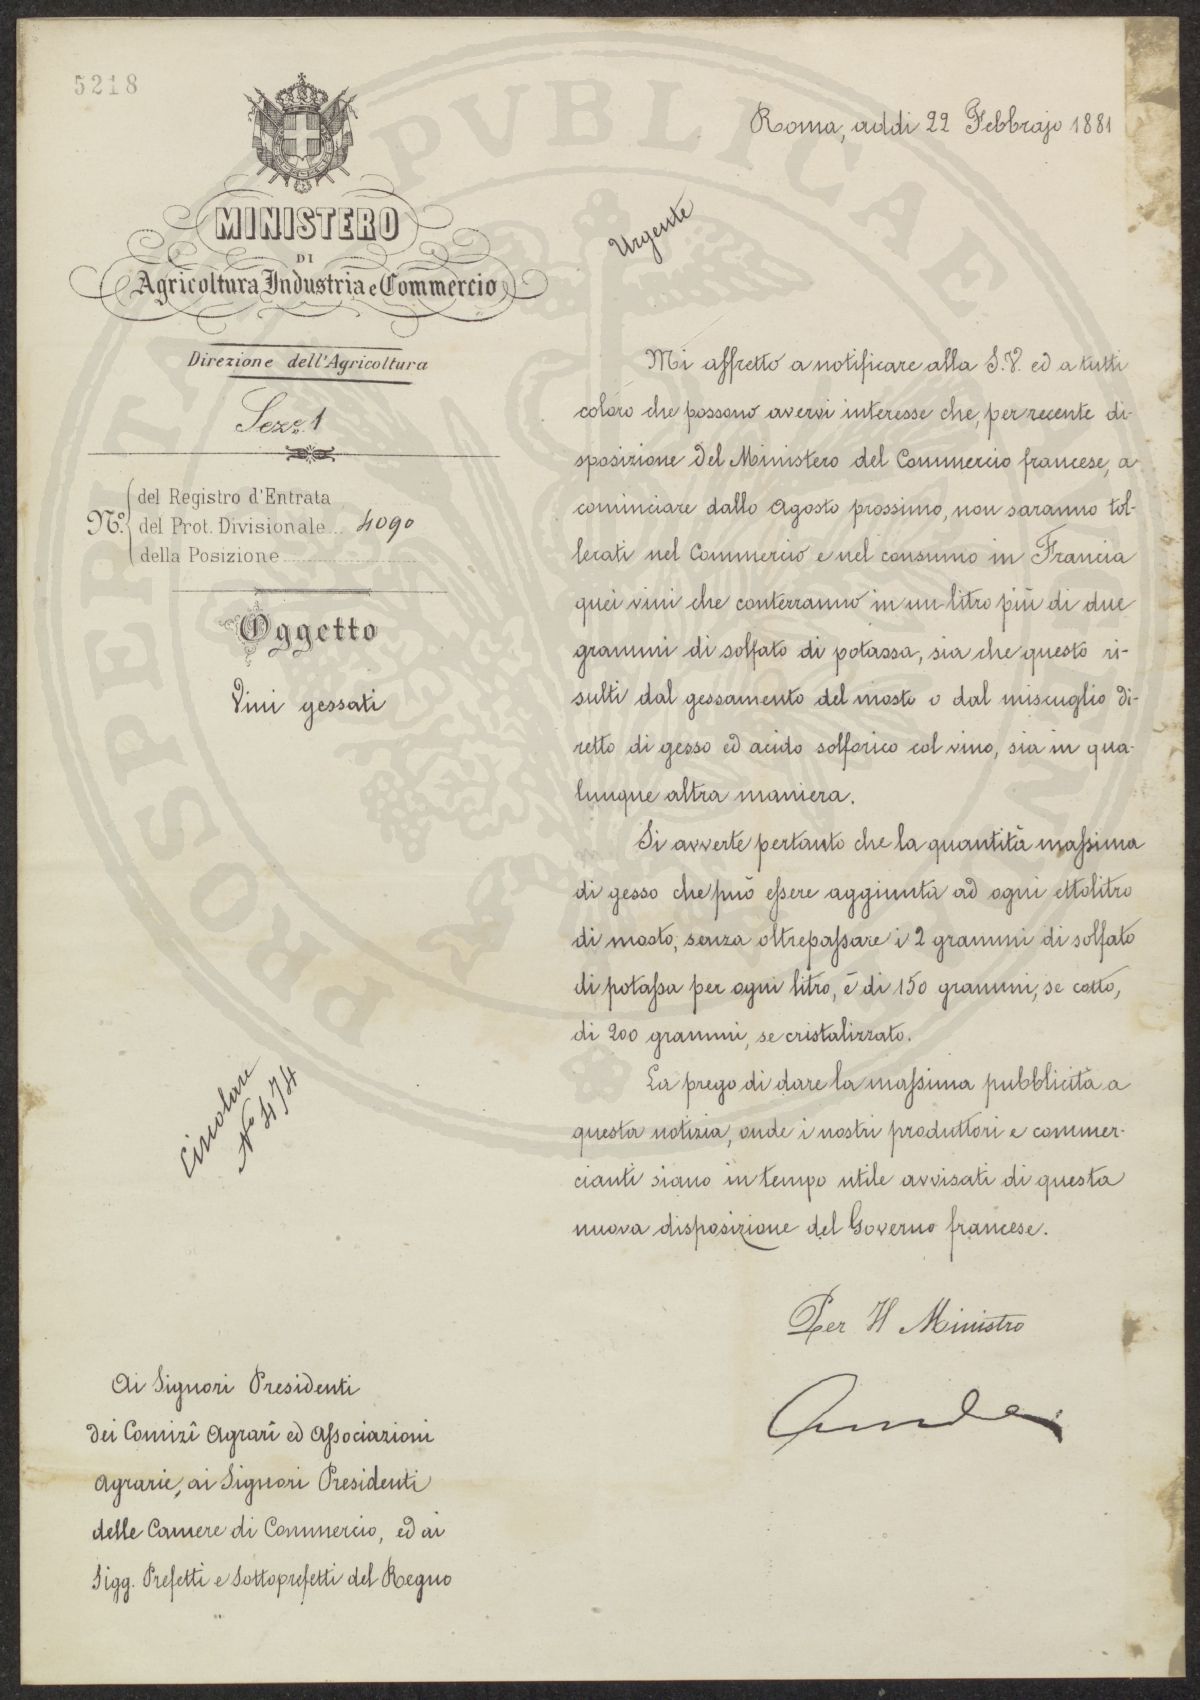 5218
MINISTERO
DI
Agricoltura Industria e Commercio
Direzione dell'Agricoltura
Seze. 1
N.o
del Registro d'Entrata
del Prot. Divisionale 4090
della Posizione
Oggetto
Vini gessati
Circolare
No 474
Ai Signori Presidenti
dei Comizî Agrarî ed Associazioni
Agrarie, ai Signori Presidenti
delle Camere di Commercio, ed ai
Sigg. Prefetti e Sottoprefetti del Regno
Roma, addi 22 Febbrajo 1881
Urgente
Mi affretto a notificare alla S.V. ed a tutti
coloro che possono avervi interesse che, per recente di-
sposizione del Ministero del Commercio francese, a
cominciare dallo Agosto prossimo, non saranno tol-
lerati nel Commercio e nel consumo in Francia
quei vini che conterranno in un litro più di due
grammi di solfato di potassa, sia che questo ri-
sulti dal gessamento del mosto o dal miscuglio di-
retto di gesso ed acido solforico col vino, sia in qua-
lunque altra maniera.
Si avverte pertanto che la quantità massima
di gesso che può essere aggiunta ad ogni ettolitro
di mosto, senza oltrepassare i 2 grammi di solfato
di potassa per ogni litro, è di 150 grammi, se cotto,
di 200 grammi, se cristalizzato.
La prego di dare la massima pubblicità a
questa notizia, onde i nostri produttori e commer-
cianti siano in tempo utile avvisati di questa
nuova disposizione del Governo francese.
Per Il Ministro
PROSPERITATI PVBLICAE